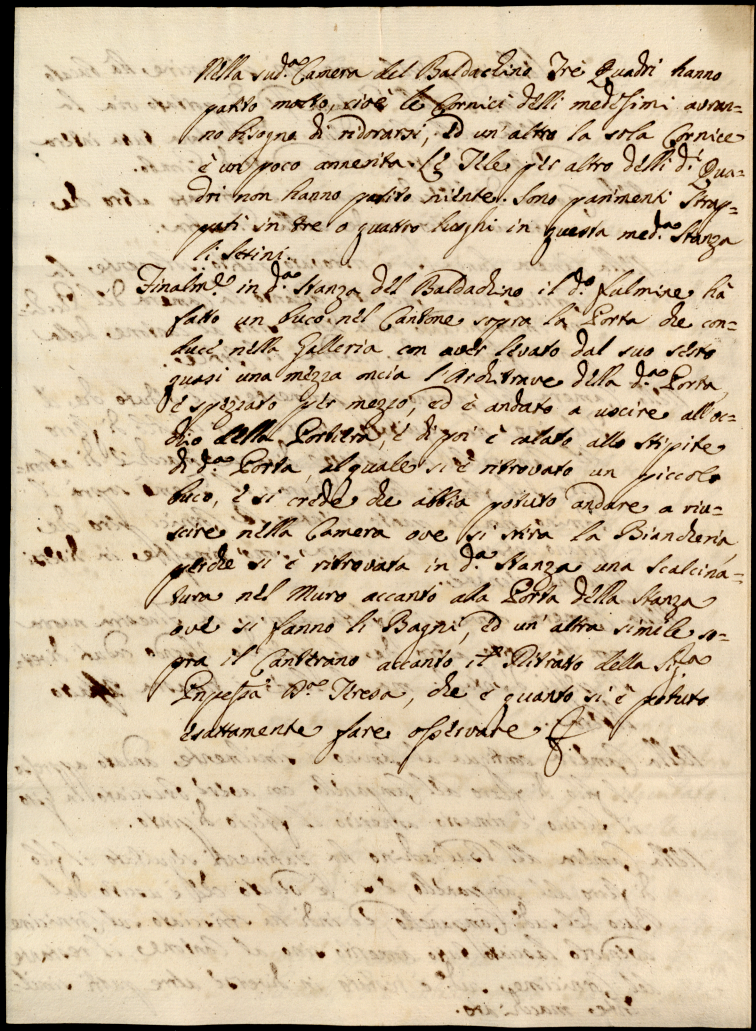 Nella sud.ª Camera del Baldachino Tre Quadri hanno
patito molto, cioè le Cornici delli medesimi avran=
no bisogno di ridorarsi, ed un' altro la sola Cornice
è un poco annerita. Le Tele per altro delli d.i Qua=
dri non hanno patito niente. Sono parimenti Strap=
pati in tre o quattro luoghi in questa med.ma Stanza
li Setini.
Finalm.e in d.ª Stanza del Baldachino il d.o fulmine hà
fatto un buco nel Cantone sopra la Porta che con=
duce nella Galleria con aver levato dal suo sesto
quasi una mezza oncia l'Architrave della d.ª Porta
è speziato per mezzo, ed è andato a uscire all'oc=
chio della Portiera, e di poi è calato allo Stipite
di d.ª Porta, al quale si è ritrovato un piccolo
buco, e si crede che abbia potuto andare a riu=
scire nella Camera ove si stira la Biancheria
perche si è ritrovata in d.ª Stanza una Scalcina=
tura nel Muro accanto alla Porta della Stanza
ove si fanno li Bagni, ed un' altra simile so=
pra il Canterano accanto il Ritratto della Sig.ra
Pnpessa D.ª Teresa, che è quanto si è potuto
esattamente fare osservare.